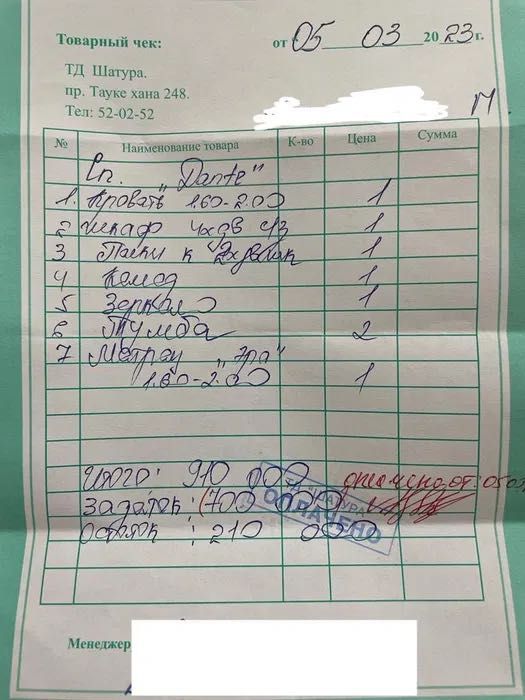 Товарный чек: от 05 03 2023г.
ТД Шатура.
пр. Тауке хана 248.
Тел: 52-02-52
№ Наименование товара К-во Цена Сумма
Сп. "Dante"
1. Кровать 160-2.00 1
2 шкаф 4хдв с/з 1
3 Полки к 2хдв 1
4 Комод 1
5 Зеркало 1
6 Тумба 2
7 Матрац "Эра"
1.60-2.00 1
Итого: 910 000
задаток: (700 000) оплачено от 05.03
остаток: 210 000
"ШАТУРА"
ОПЛАЧЕНО
Менеджер